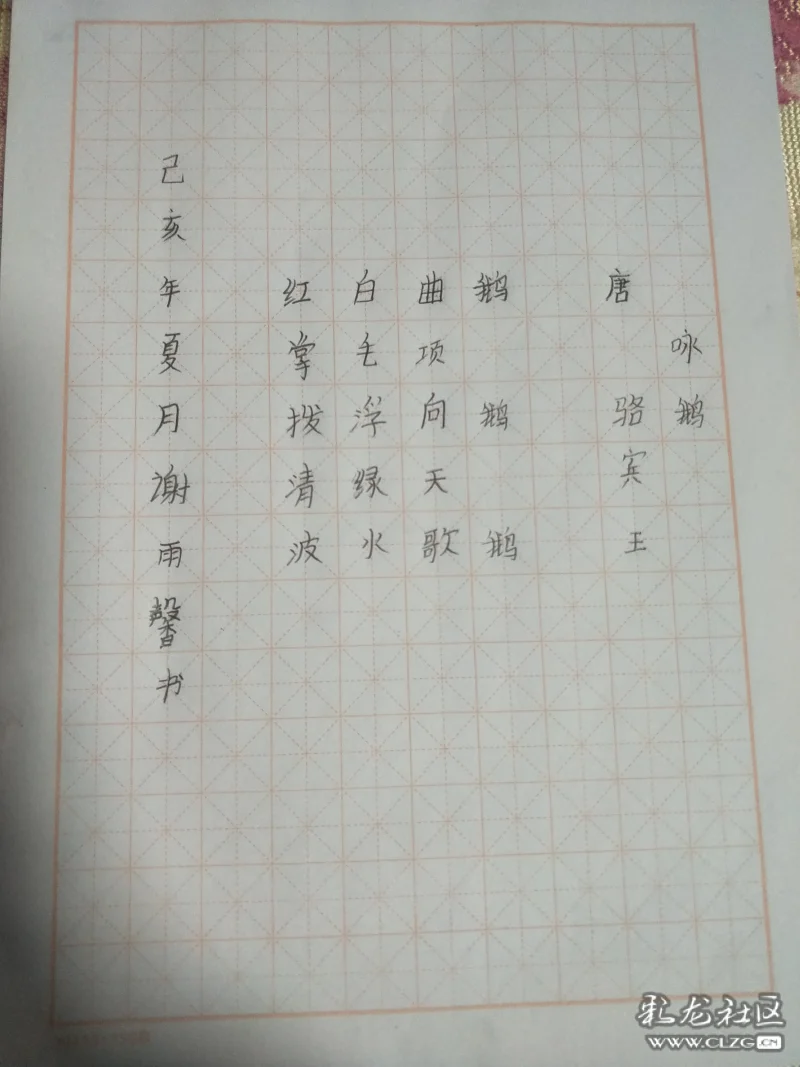 咏鹅
唐 骆宾王
鹅 鹅 鹅
曲项向天歌
白毛浮绿水
红掌拨清波
己亥年夏月谢雨馨书
彩龙社区
WWW.CLZG.CN